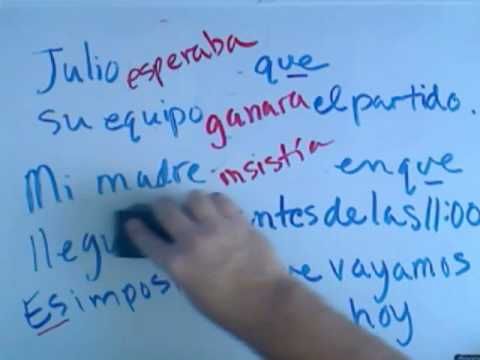 Julio esperaba que
su equipo ganara el partido.
Mi madre insistía en que
antes de las 11:00
Es vayamos
hoy